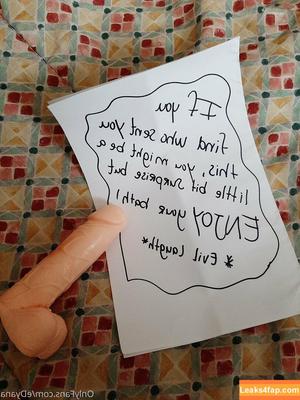 If you
find who sent you
this, you might be a
little bit surprise but
ENJOY your bath!
*Evil Laugth*
OnlyFans.com/eDyana
Leaks4fap.com